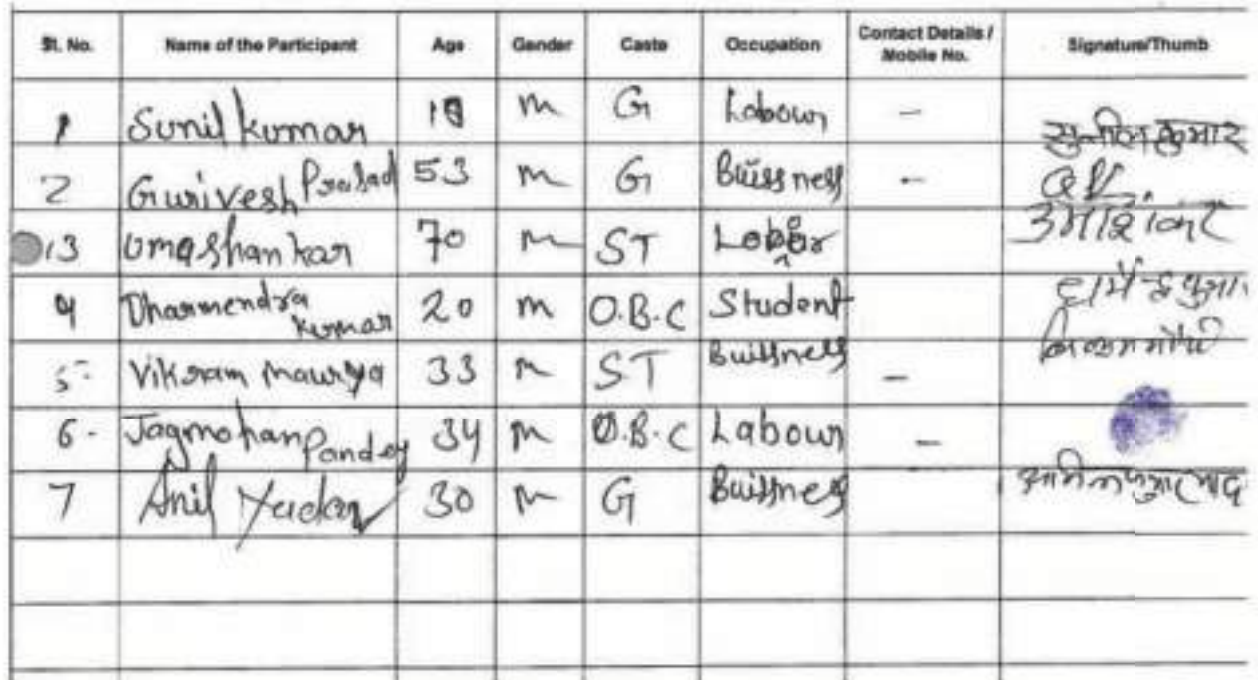 Sl. No. Name of the Participant Age Gender Caste Occupation Contact Details / Mobile No. Signature/Thumb
1 Sunil Kumar m G Labour - सुनील कुमार
2 Gurivesh Prasad 53 m G Buissness -
13 Umashankar 70 m ST Labour उमाशंकर
4 Dharmendra Kumar 20 m O.B.C Student
5- Vikram Maurya 33 m ST Buissness -
6- Jagmohan Pandey 34 m O.B.C Labour -
7 Anil Yadav 30 m G Buissness